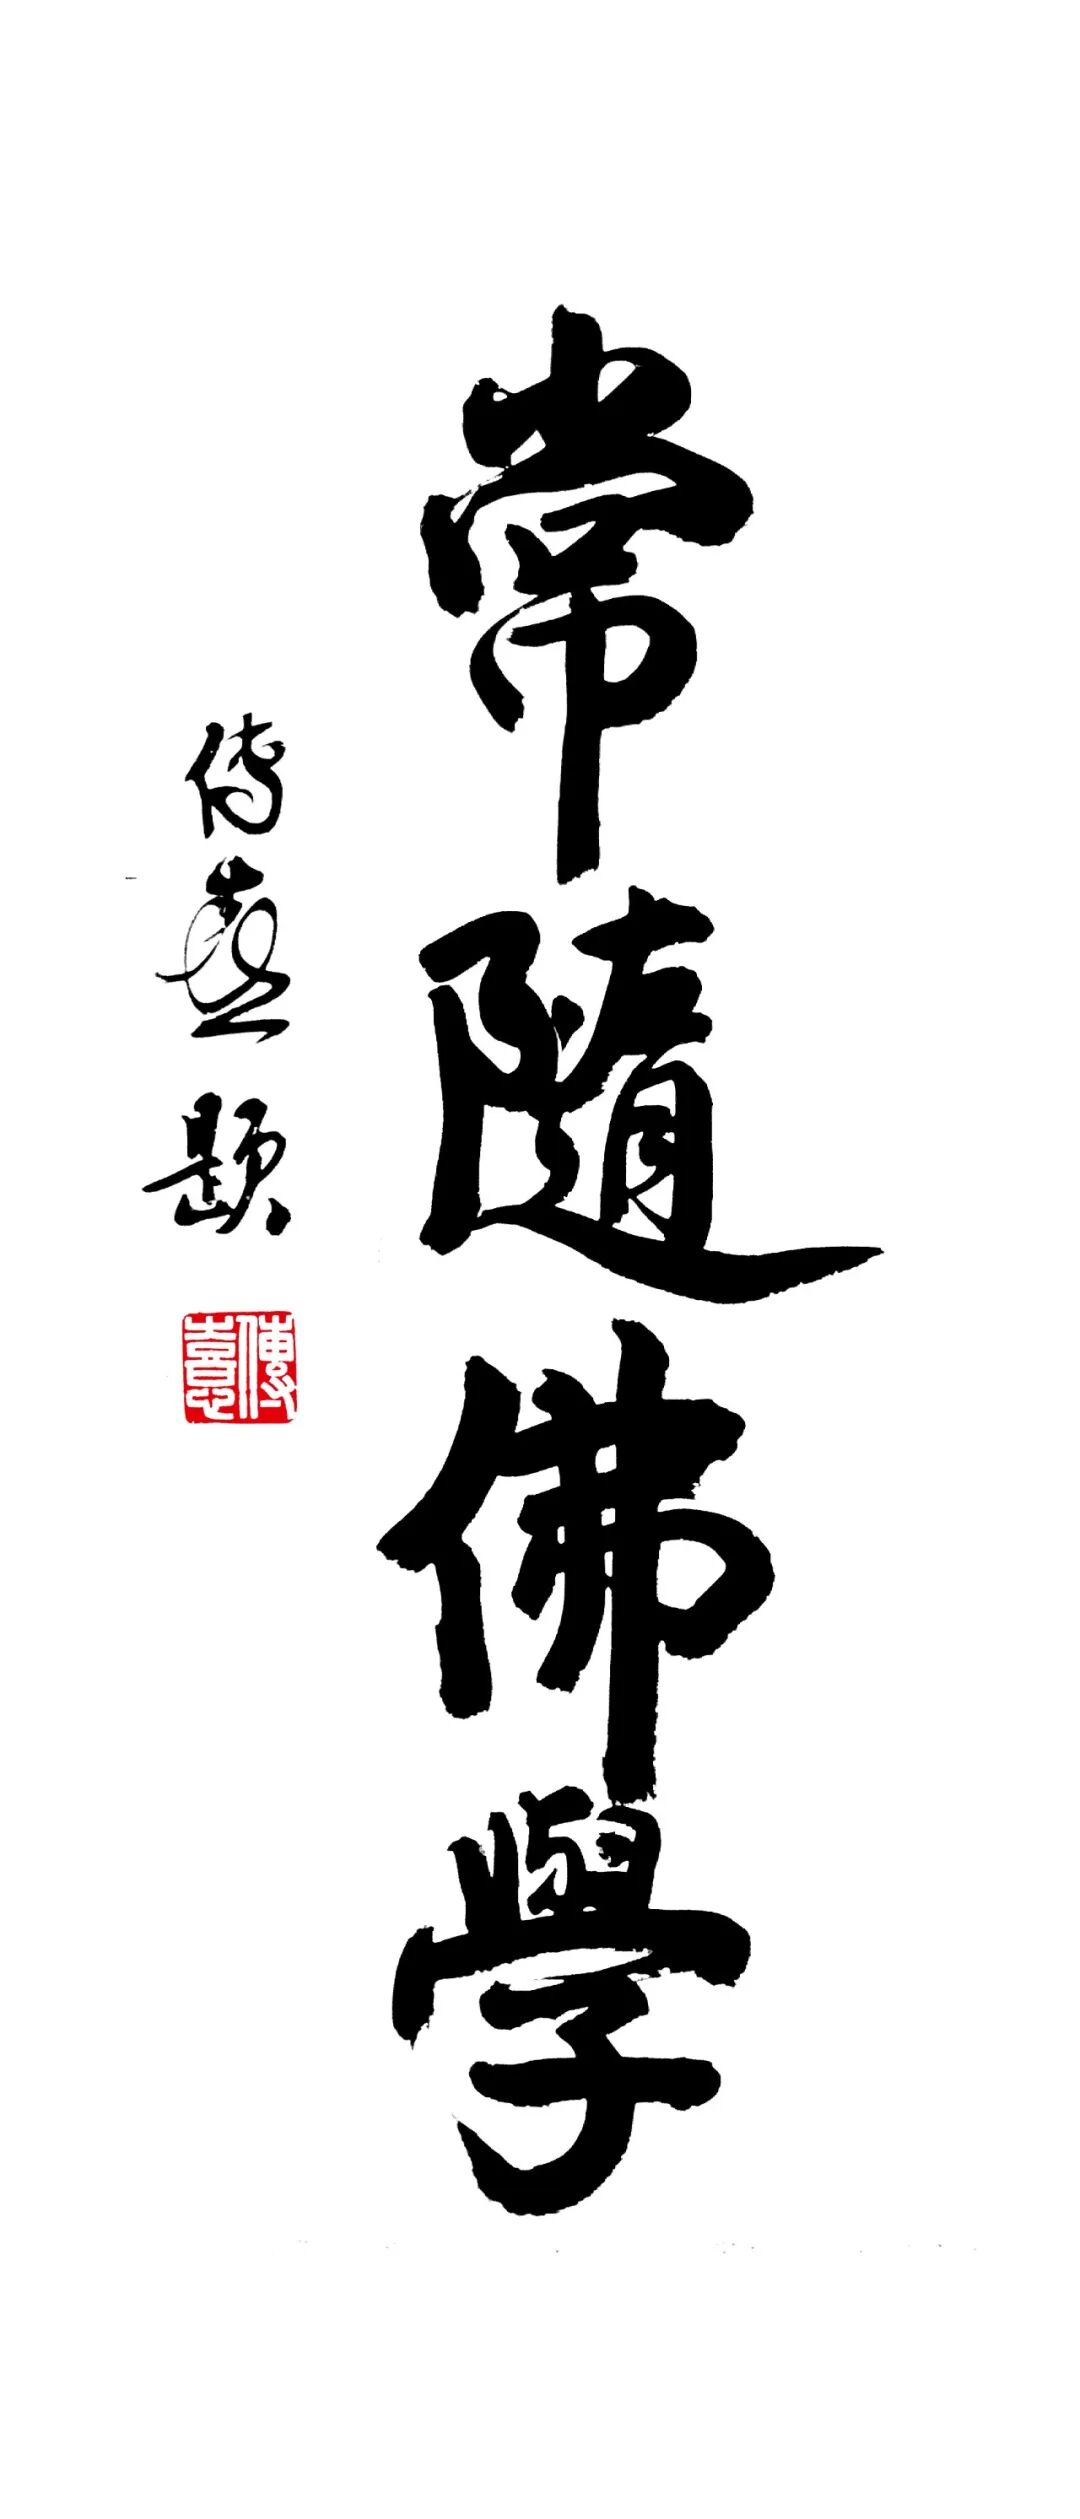 常隨佛學
傳喜題
傳喜